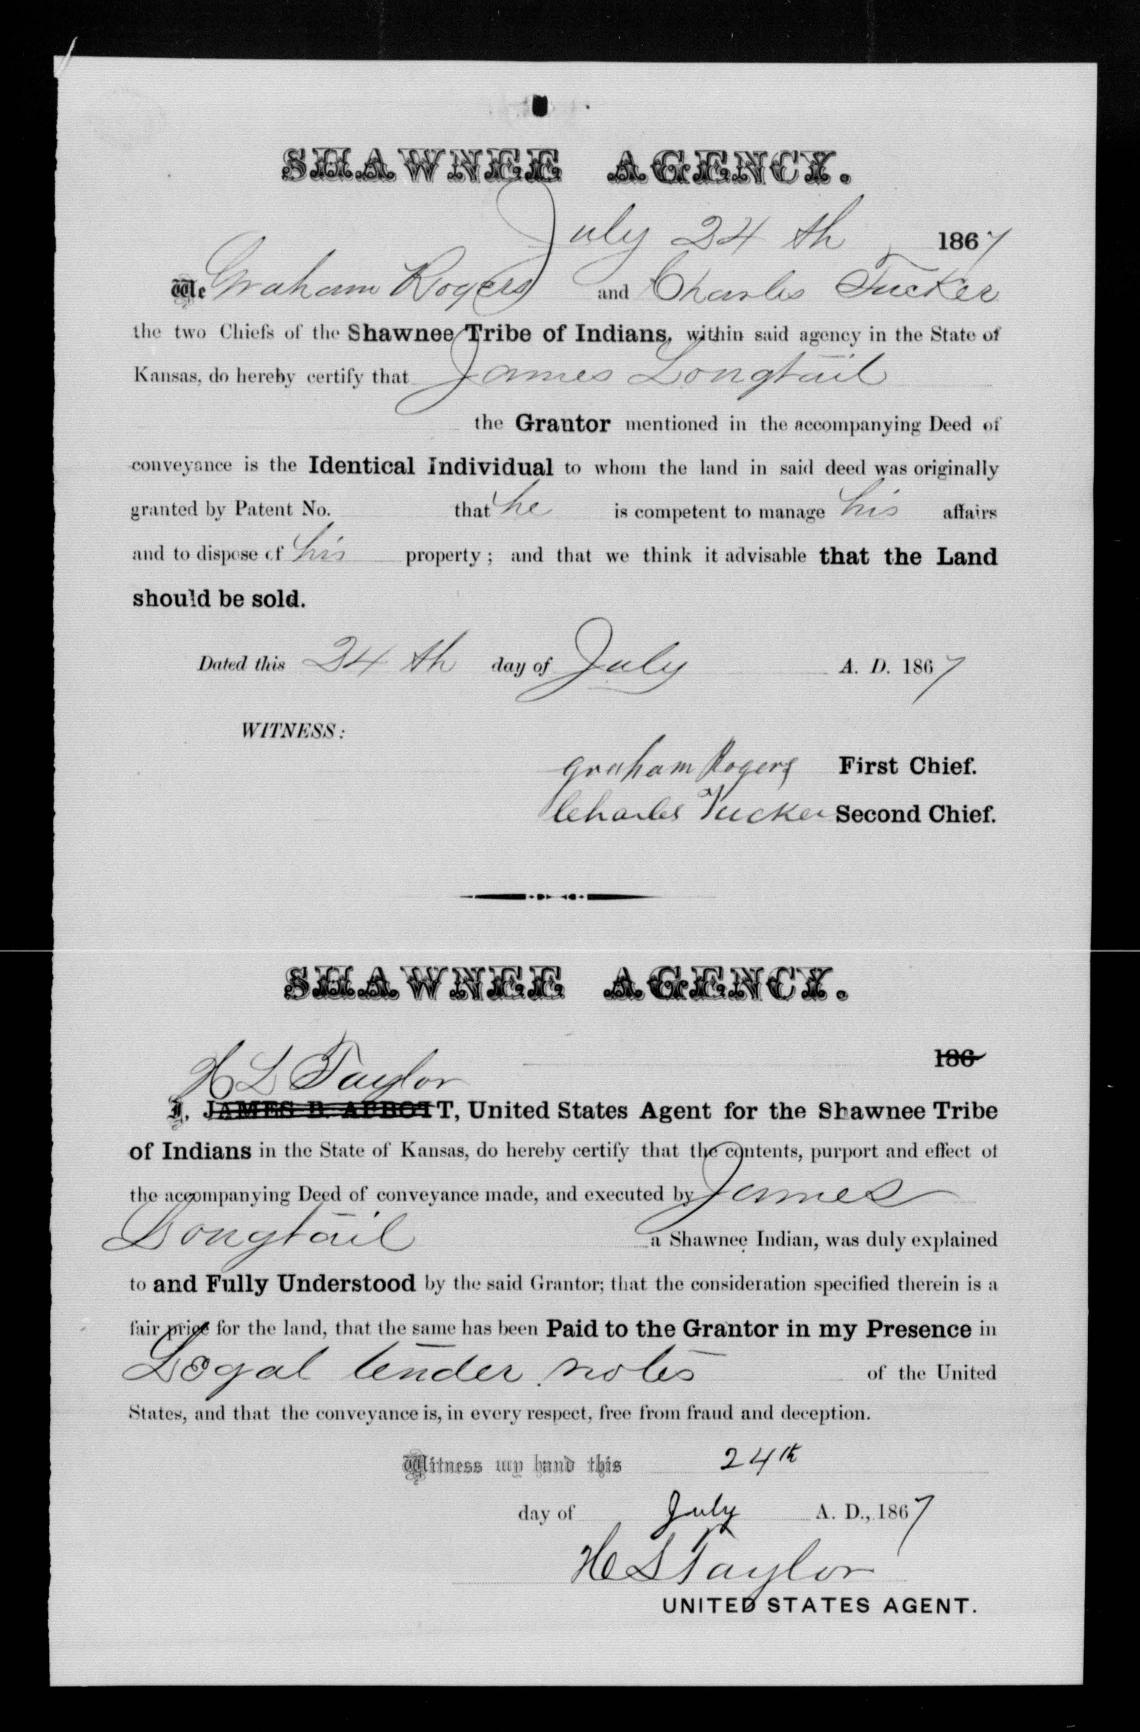 SHAWNEE AGENCY.
July 24th 1867
We Graham Rogers and Charles Tucker
the two Chiefs of the Shawnee Tribe of Indians, within said agency in the State of
Kansas, do hereby certify that James Longtail
the Grantor mentioned in the accompanying Deed of
conveyance is the Identical Individual to whom the land in said deed was originally
granted by Patent No. that he is competent to manage his affairs
and to dispose of his property; and that we think it advisable that the Land
should be sold.
Dated this 24th day of July A. D. 1867
WITNESS:
Graham Rogers First Chief.
Charles Tucker Second Chief.
SHAWNEE AGENCY.
186
H L Taylor
I, JAMES B. ABBOTT, United States Agent for the Shawnee Tribe
of Indians in the State of Kansas, do hereby certify that the contents, purport and effect of
the accompanying Deed of conveyance made, and executed by James
Longtail a Shawnee Indian, was duly explained
to and Fully Understood by the said Grantor; that the consideration specified therein is a
fair price for the land, that the same has been Paid to the Grantor in my Presence in
Legal tender notes of the United
States, and that the conveyance is, in every respect, free from fraud and deception.
Witness my hand this 24th
day of July A. D., 1867
H L Taylor
UNITED STATES AGENT.